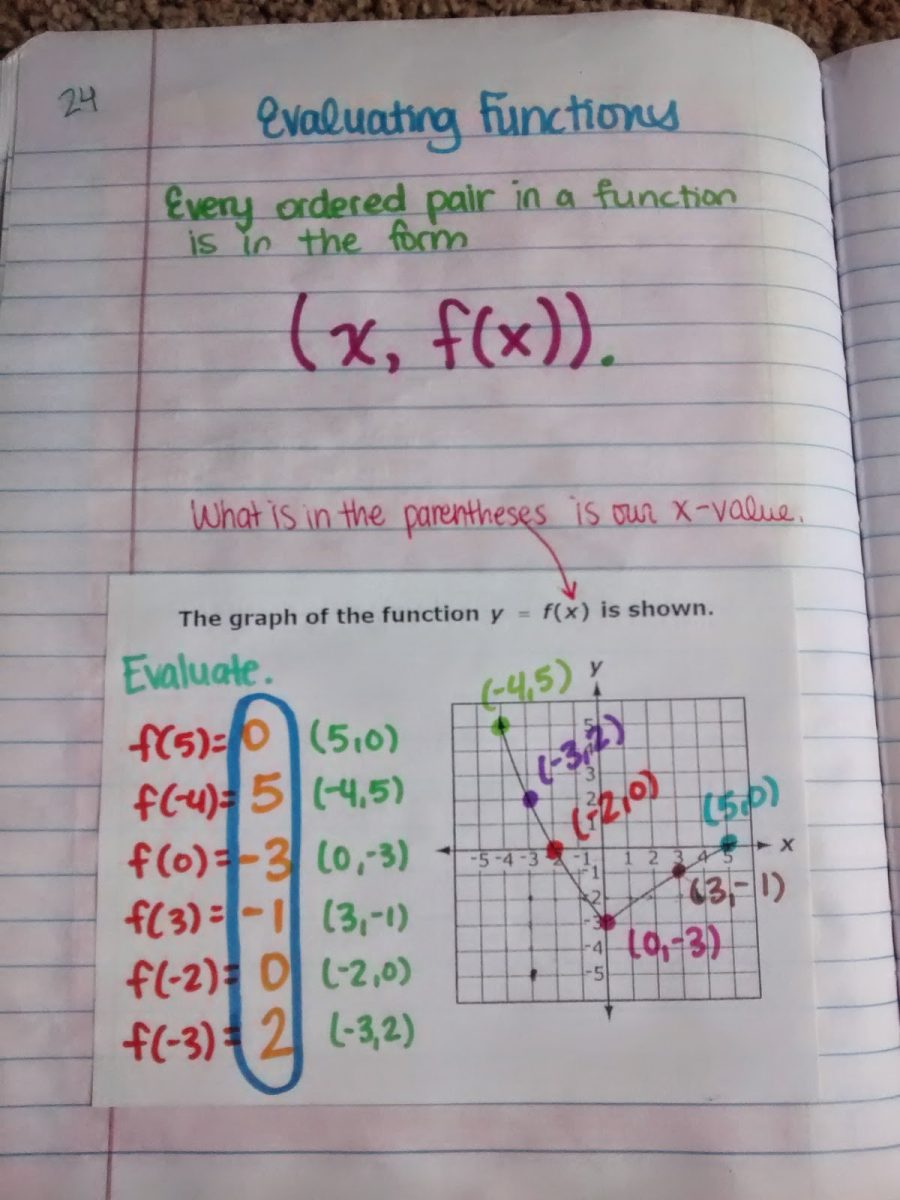 24
Evaluating Functions
Every ordered pair in a function
is in the form
(x, f(x)).
What is in the parentheses is our x-value.
The graph of the function y = f(x) is shown.
Evaluate.
f(5)= 0 (5,0)
f(-4)= 5 (-4,5)
f(0)= -3 (0,-3)
f(3)= -1 (3,-1)
f(-2)= 0 (-2,0)
f(-3)= 2 (-3,2)
y
(-4,5)
5
(-3,2)
3
2
(-2,0)
1
(5,0)
-5 -4 -3 2 -1 1 2 3 4 5 x
-1
(3,-1)
-2
-3
(0,-3)
-4
-5